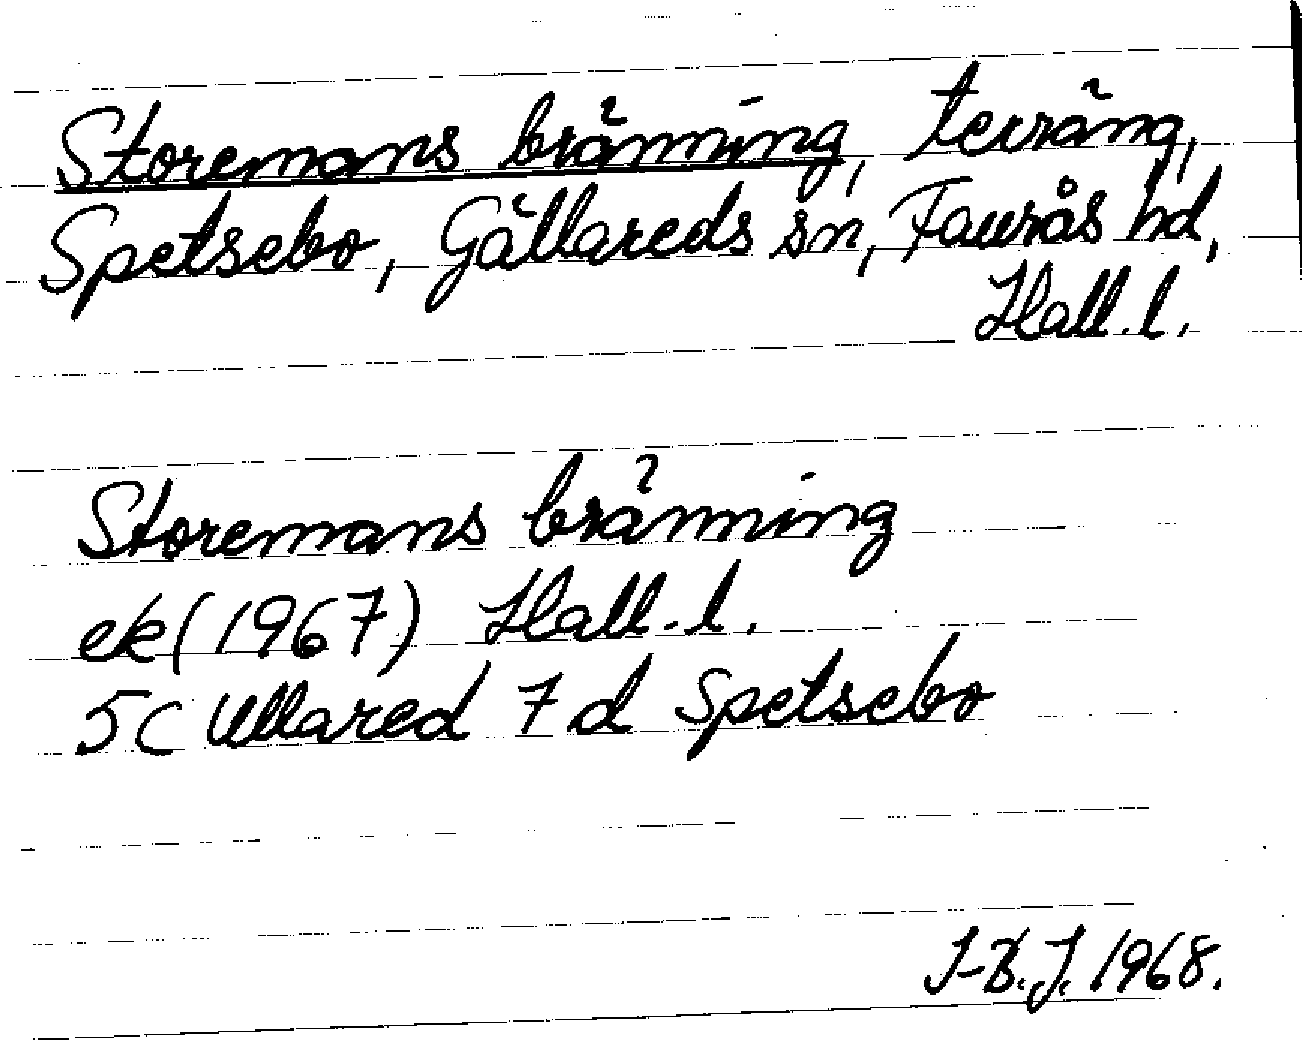 Storemans bränning, terräng,
Spetsebo, Gällareds sn, Faurås hd,
Hall.l.
Storemans bränning
ek (1967) Hall.l.
5C Ullared 7d Spetsebo
I-B.J. 1968.